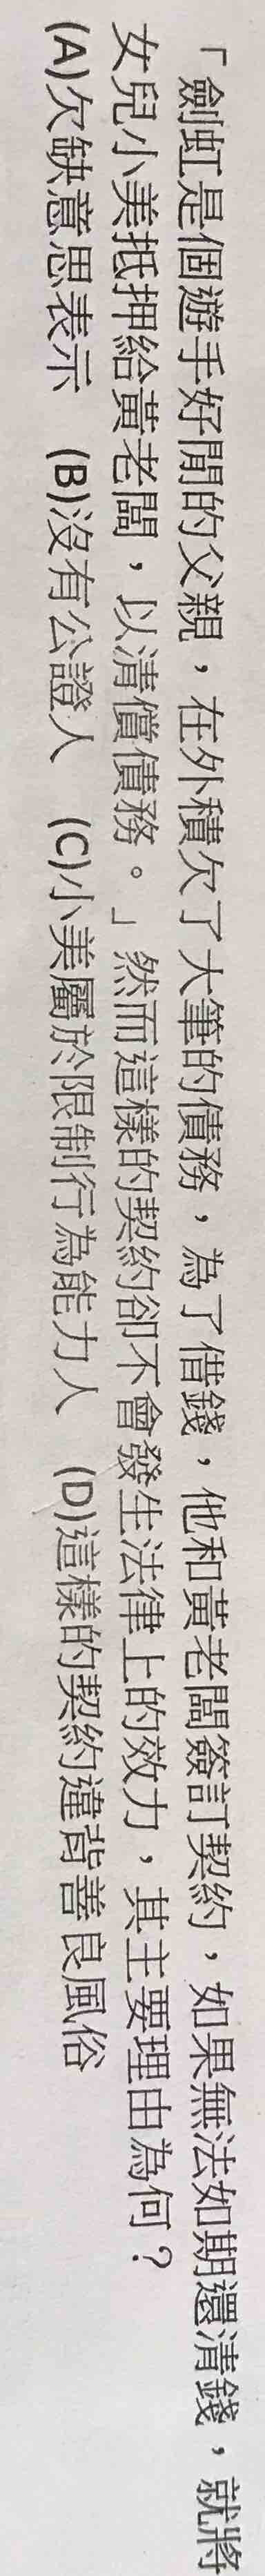 「劍虹是個遊手好閒的父親，在外積欠了大筆的債務，為了借錢，他和黃老闆簽訂契約，如果無法如期還清錢，就將
女兒小美抵押給黃老闆，以清償債務。」然而這樣的契約卻不會發生法律上的效力，其主要理由為何？
(A)欠缺意思表示　(B)沒有公證人　(C)小美屬於限制行為能力人　(D)這樣的契約違背善良風俗